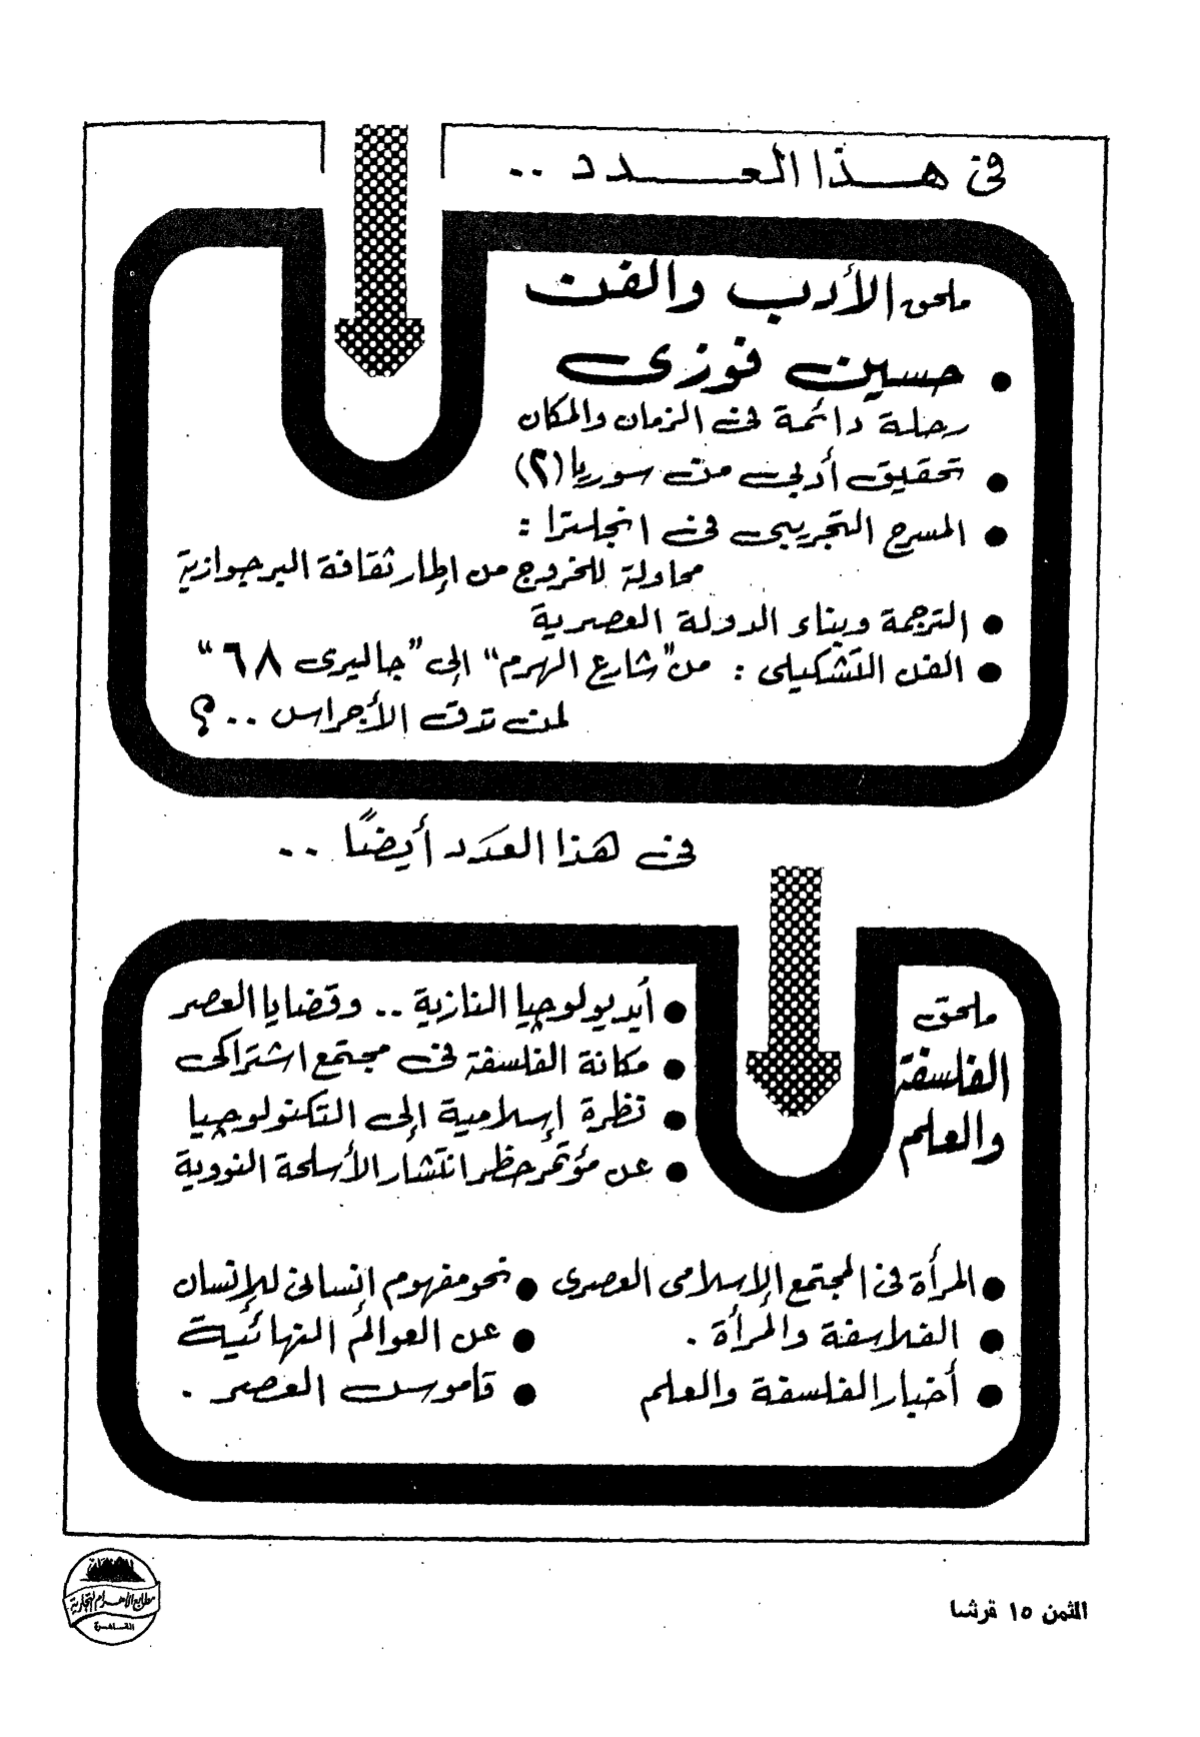 فى هذا العدد ..
ملحق الأدب والفن
• حسين فوزى
رحلة دائمة فى الزمان والمكان
• تحقيق أدبى من سوريا (٢)
• المسرح التجريبى فى انجلترا :
محاولة للخروج من إطار ثقافة البرجوازية
• الترجمة وبناء الدولة العصرية
• الفن التشكيلى : من "شارع الهرم" إلى "جاليرى ٦٨"
لمن تدق الأجراس .. ؟
فى هذا العدد أيضًا ..
ملحق
الفلسفة
والعلم
• أيديولوجيا النازية .. وقضايا العصر
• مكانة الفلسفة فى مجتمع اشتراكى
• نظرة إسلامية إلى التكنولوجيا
• عن مؤتمر حظر انتشار الأسلحة النووية
• المرأة فى المجتمع الإسلامى العصرى
• الفلاسفة والمرأة .
• أخبار الفلسفة والعلم
• نحو مفهوم إنسانى للإنسان
• عن العوالم النهائية
• قاموس العصر .
مطابع الأهرام التجارية
القاهرة
الثمن ١٥ قرشا